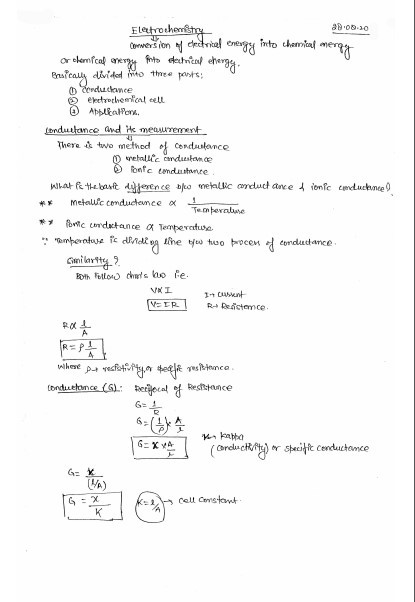 Electrochemistry 28.08.20
conversion of electrical energy into chemical energy
or chemical energy into electrical energy.
Basically divided into three parts:
① conductance
② electrochemical cell
③ Applications.
conductance and its measurement
There is two method of conductance
① metallic conductance
② Ionic conductance
What is the basic difference b/w metallic conductance & ionic conductance?
** Metallic conductance ∝ 1/Temperature
** Ionic conductance ∝ Temperature
∵ Temperature is dividing line b/w two process of conductance.
Similarity?
Both Follow ohm's law i.e.
V ∝ I
V = IR
I → current
R → Resistance.
R ∝ l/A
R = ρ l/A
Where ρ → resistivity or specific resistance.
Conductance (G): Reciprocal of Resistance
G = 1/R
G = (1/ρ) × A/l
G = κ × A/l
κ → kappa
(conductivity) or specific conductance
G = κ/(l/A)
G = κ/K
K = l/A → cell constant.